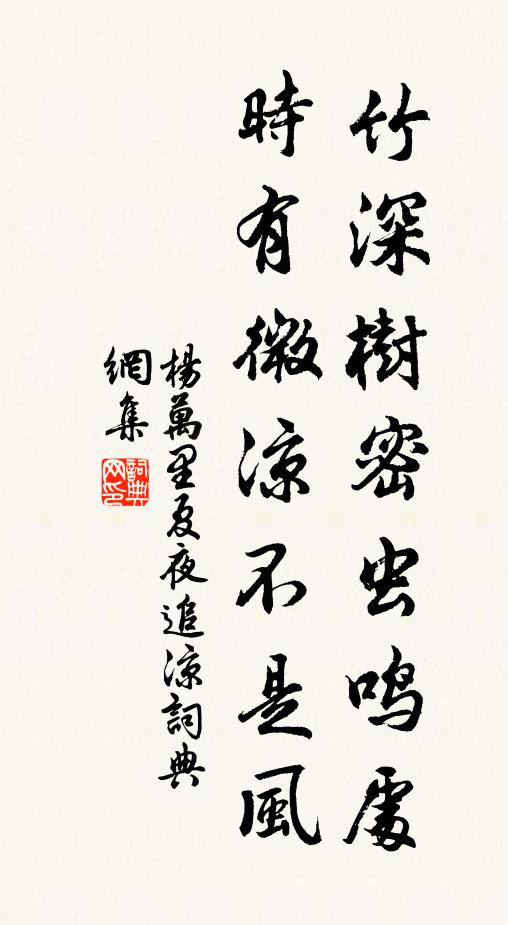 竹深樹密虫鳴處
時有微涼不是風
楊萬里夏夜追涼詞典
網集
詞典
网印